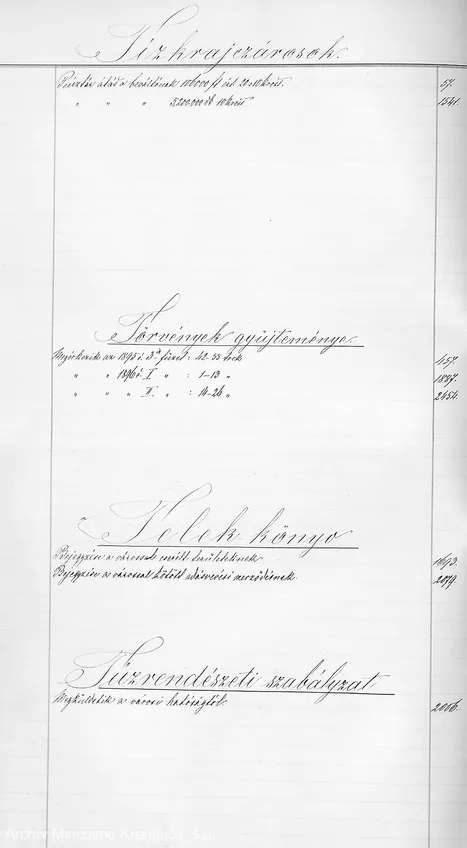 Tízkrajczárosok.
Pénztár átad a beváltónak 100000 ft ért. 20 a 10 kros. 57.
" " " 5,200.000 db 10 kros 1541.
Törvények gyűjteménye
Megérkezik az 1895 i. 3ik füzet : 42-55 ívek 457.
" " 1896 i. I " : 1-13 " 1887.
" " " II. " : 14-26 " 2454.
Telek-könyv
Bejegyzése a várossal cserélt területeknek 1693.
Bejegyzése a várossal kötött adásvevési szerződésnek. 2079.
Tűzrendészeti szabályzat
Megküldetik a városi hatóságtól. 2006.
Archív Mincovne Kremnica, š.p.